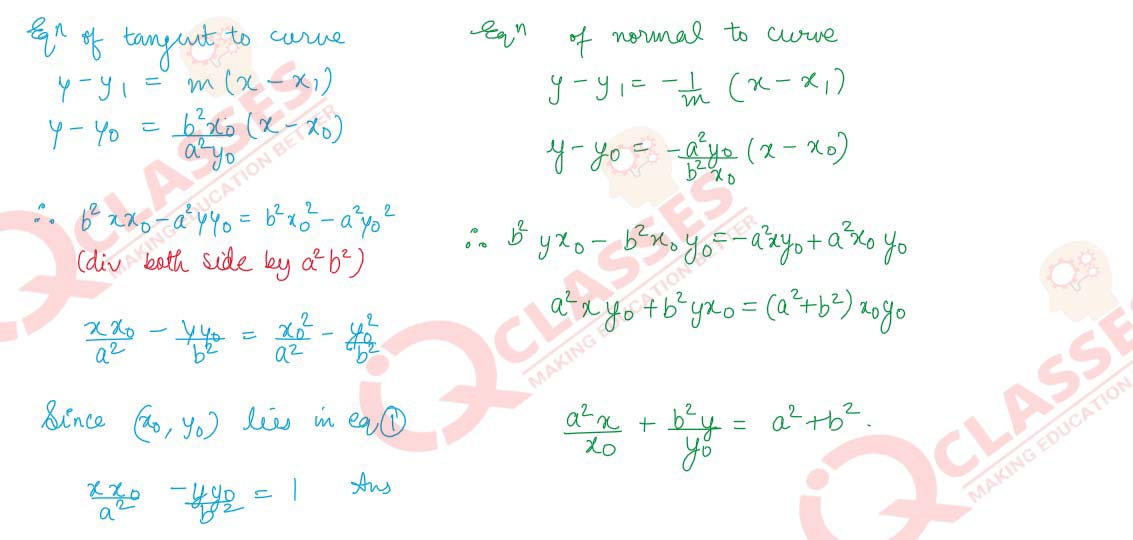 Eqⁿ of tangent to curve
y - y₁ = m(x - x₁)
y - y₀ = b²x₀/a²y₀ (x - x₀)
∴ b²xx₀ - a²yy₀ = b²x₀² - a²y₀²
(div both side by a²b²)
xx₀/a² - yy₀/b² = x₀²/a² - y₀²/b²
Since (x₀, y₀) lies in eq ①
xx₀/a² - yy₀/b² = 1 Ans
Eqⁿ of normal to curve
y - y₁ = -1/m (x - x₁)
y - y₀ = -a²y₀/b²x₀ (x - x₀)
∴ b²yx₀ - b²x₀y₀ = -a²xy₀ + a²x₀y₀
a²xy₀ + b²yx₀ = (a²+b²)x₀y₀
a²x/x₀ + b²y/y₀ = a²+b².
CLASSES
MAKING EDUCATION BETTER
QCLASSES
MAKING EDUCATION BETTER
QCLASSES
MAKING EDUCATION